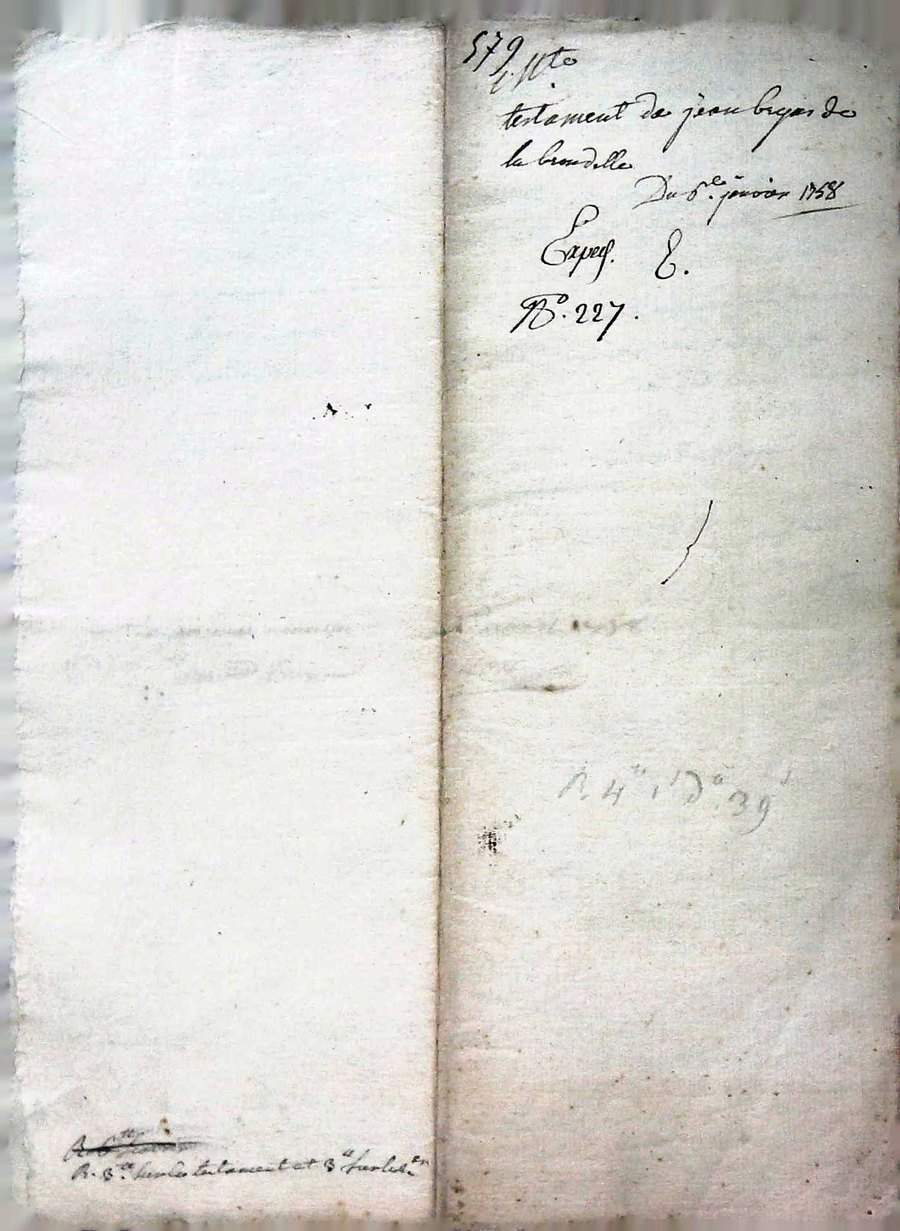 579
testament de jean bryas de
la brudelle
Du 6e janvier 1758
Exped. E.
No. 227.
R. 4tt 1s Do 39s
R. 3tt sur le testament et 3tt sur le